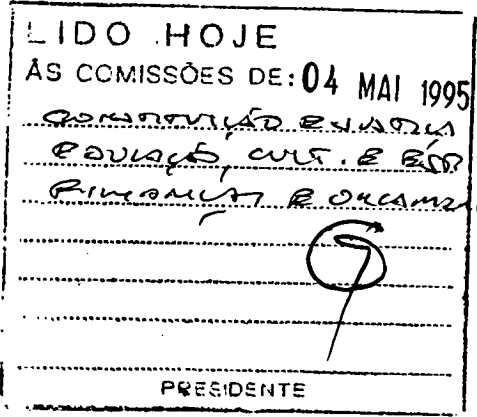 LIDO HOJE
ÀS COMISSÕES DE: 04 MAI 1995
CONSTITUIÇÃO E JUSTIÇA
EDUCAÇÃO, CULT. E ESP
FINANÇAS E ORÇAMEN
PRESIDENTE